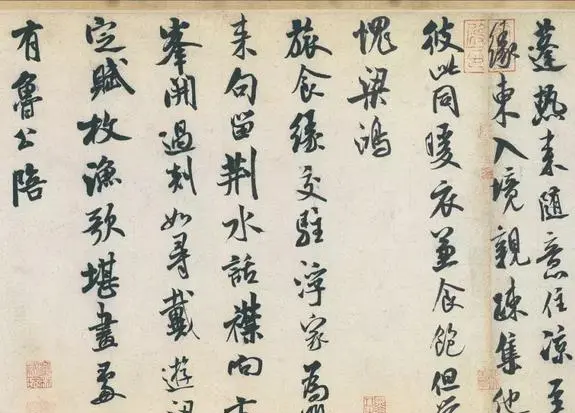 蓬熱來随意住凉至
緣東入境親疎集他
彼此同暖衣兼食飽但
愧梁鴻
旅食緣交駐浮家為
来句留荆水話襟向
峯開過剡如尋戴遊梁
定賦枚漁歌堪畫處
有魯公陪